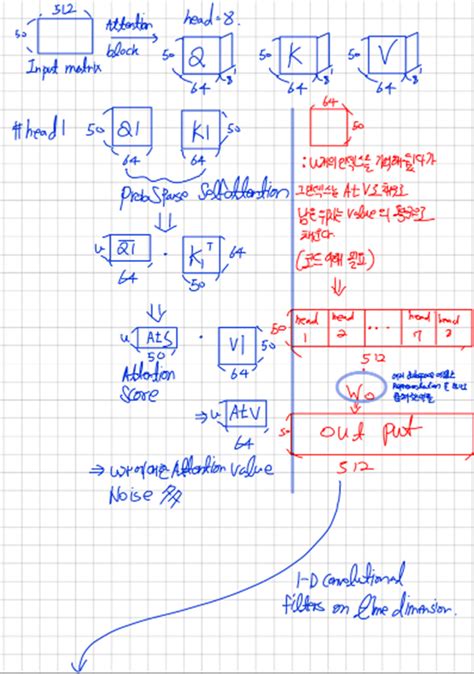 512
50
Input matrix
Attention
block
head=8.
50 Q 64 8
50 K 64 8
50 V 64 8
#head1
50 Q1 64
K1 50 64
ProbSparse Self Attention
u Q1 64 · K1 T 64 50
u AtS 50 · V1 50 64
Attention
Score
⇒ u AtV 64
⇒ Attention Value
Noise 多
64
50
: u개의 인덱스를 기억해놨다가
그 인덱스는 AtV로 채우고
남은 value의 평균으로
채운다.
(코드 이해 필요)
50 head 1 head 2 ... head 7 head
512
Wo
50 out put
512
1-D convolutional
filters on time dimension.